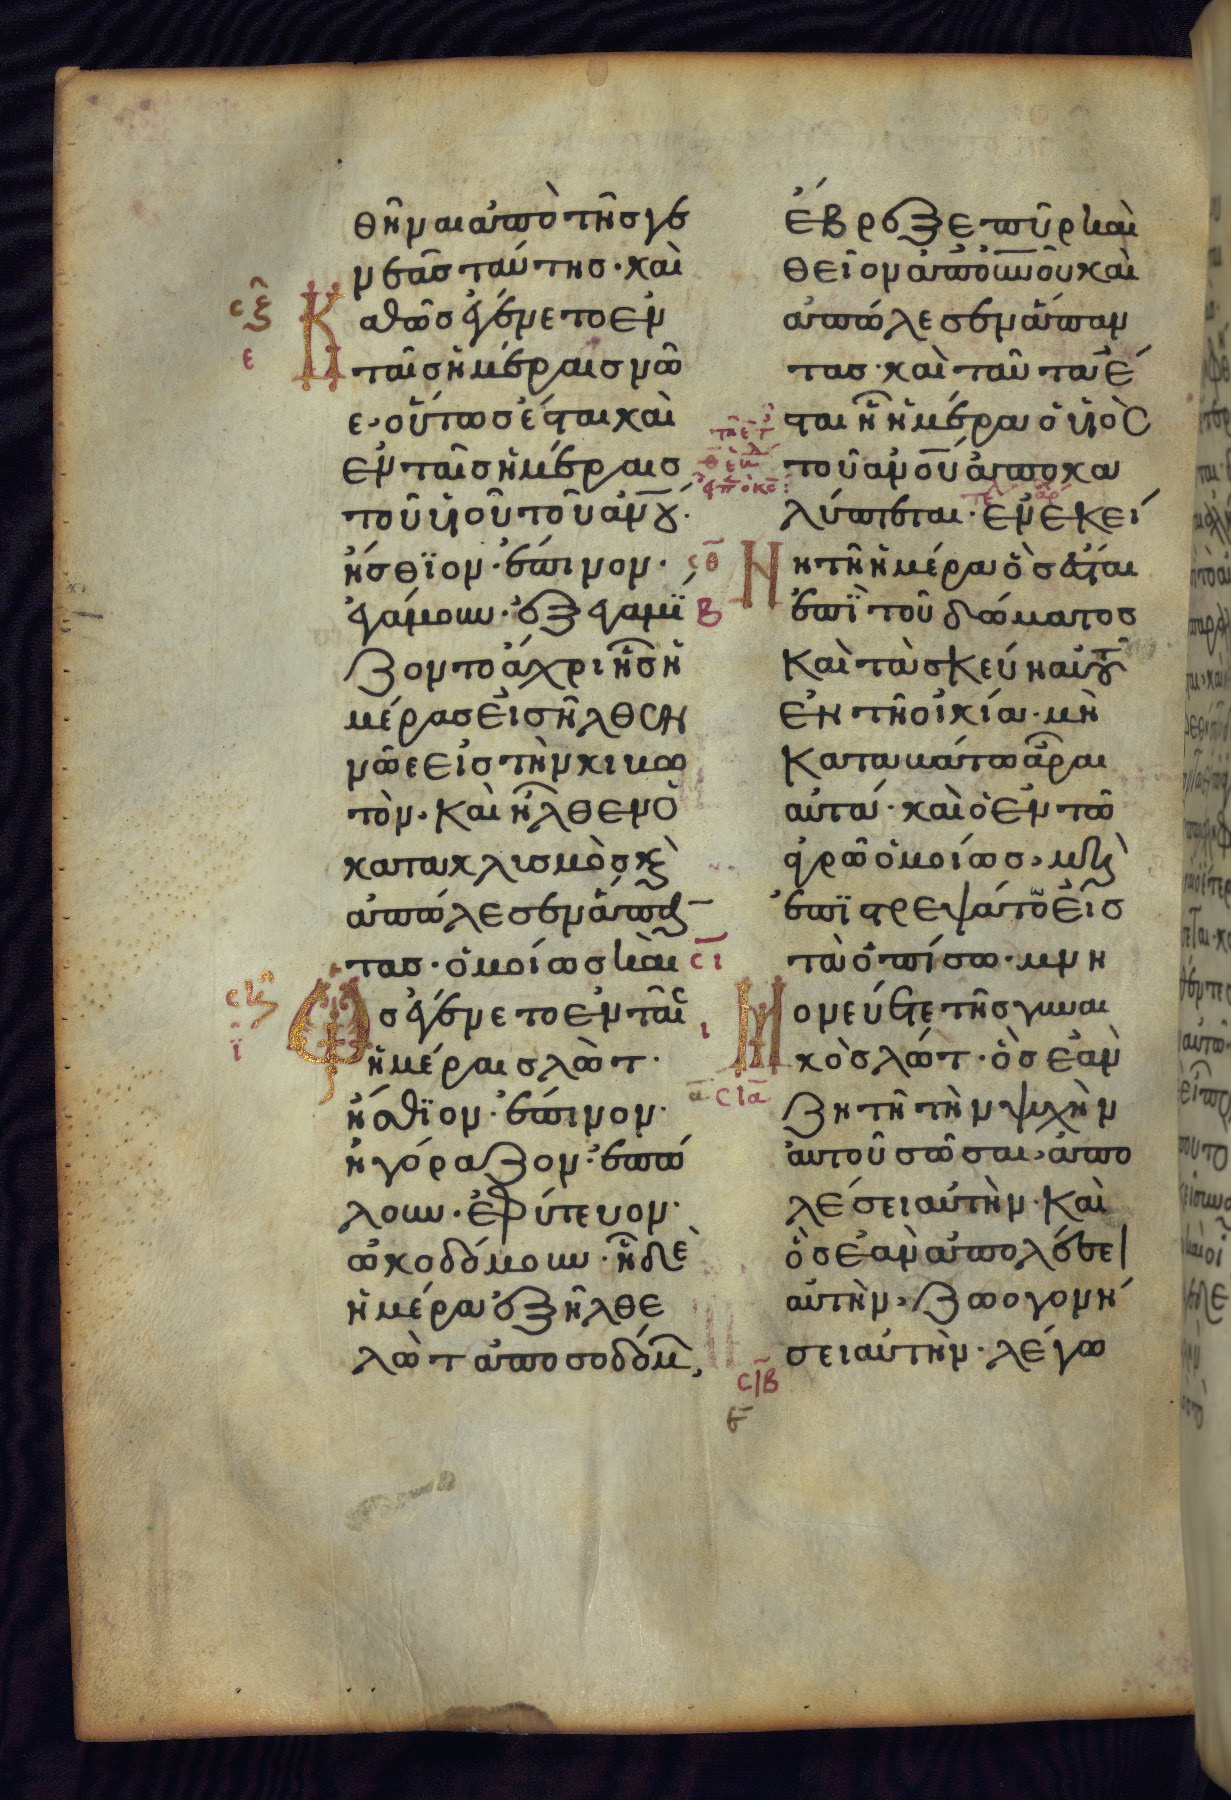 θῆναι ἀπὸ τῆς γε
νεᾶς ταύτης· καὶ
Καθὼς ἐγένετο ἐν
ταῖς ἡμέραις νῶ
ε· οὕτως ἔσται καὶ
ἐν ταῖς ἡμέραις
τοῦ υἱοῦ τοῦ ἀν̅ο̅υ̅·
ἤσθϊον· ἔπινον·
ἐγάμουν· ἐξεγαμΐ
ζοντο ἄχρι ἧς ἡ
μέρας εἰσῆλθεν
νῶε εἰς τὴν κιβω
τόν· καὶ ἦλθεν ὁ
κατακλισμὸς καὶ
ἀπώλεσεν ἅπαν
τας· ὁμοίως καὶ
Ὡς ἐγένετο ἐν ταῖς
ἡμέραις λώτ·
ἤσθϊον· ἔπινον·
ἠγόραζον· ἐπώ
λουν· ἐφύτευον·
ὠκοδόμουν· ᾗ δὲ
ἡμέρα ἐξῆλθε
λὼτ ἀπὸ σοδόμ,
ἔβρεξε πῦρ καὶ
θεῖον ἀπ' οὐ̅ν̅οῦ καὶ
ἀπώλεσεν ἅπαν
τας· καὶ ταῦτα ἔ
σται ᾗ ἡμέρα ὁ υἱὸς
τοῦ ἀν̅ο̅υ̅ ἀποκα
λύπτεται· ἐν ἐκεί
νη τῇ ἡμέρα ὃς ἔσται
ἐπῒ τοῦ δώματος
καὶ τὰ σκεύη αὐτοῦ
ἐν τῇ οἰκία· μὴ
καταβάτω ἆραι
αὐτά· καὶ ὁ ἐν τῶ
ἀγρῶ ὁμοίως· μὴ
ἐπϊστρεψάτω εἰς
τὰ ὀπίσω· μνη
μονεύετε τῆς γυναι
κὸς λώτ· ὃς ἐὰν
ζητῇ τὴν ψυχὴν
αὐτοῦ σῶσαι· ἀπο
λέσει αὐτήν· καὶ
ὃς ἐὰν ἀπολέσει
αὐτὴν· ζωογονή
σει αὐτήν· λέγω